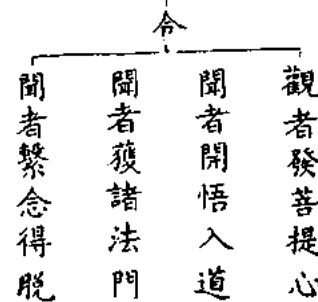 令
觀者發菩提心
聞者開悟入道
聞者獲諸法門
聞者繫念得脫